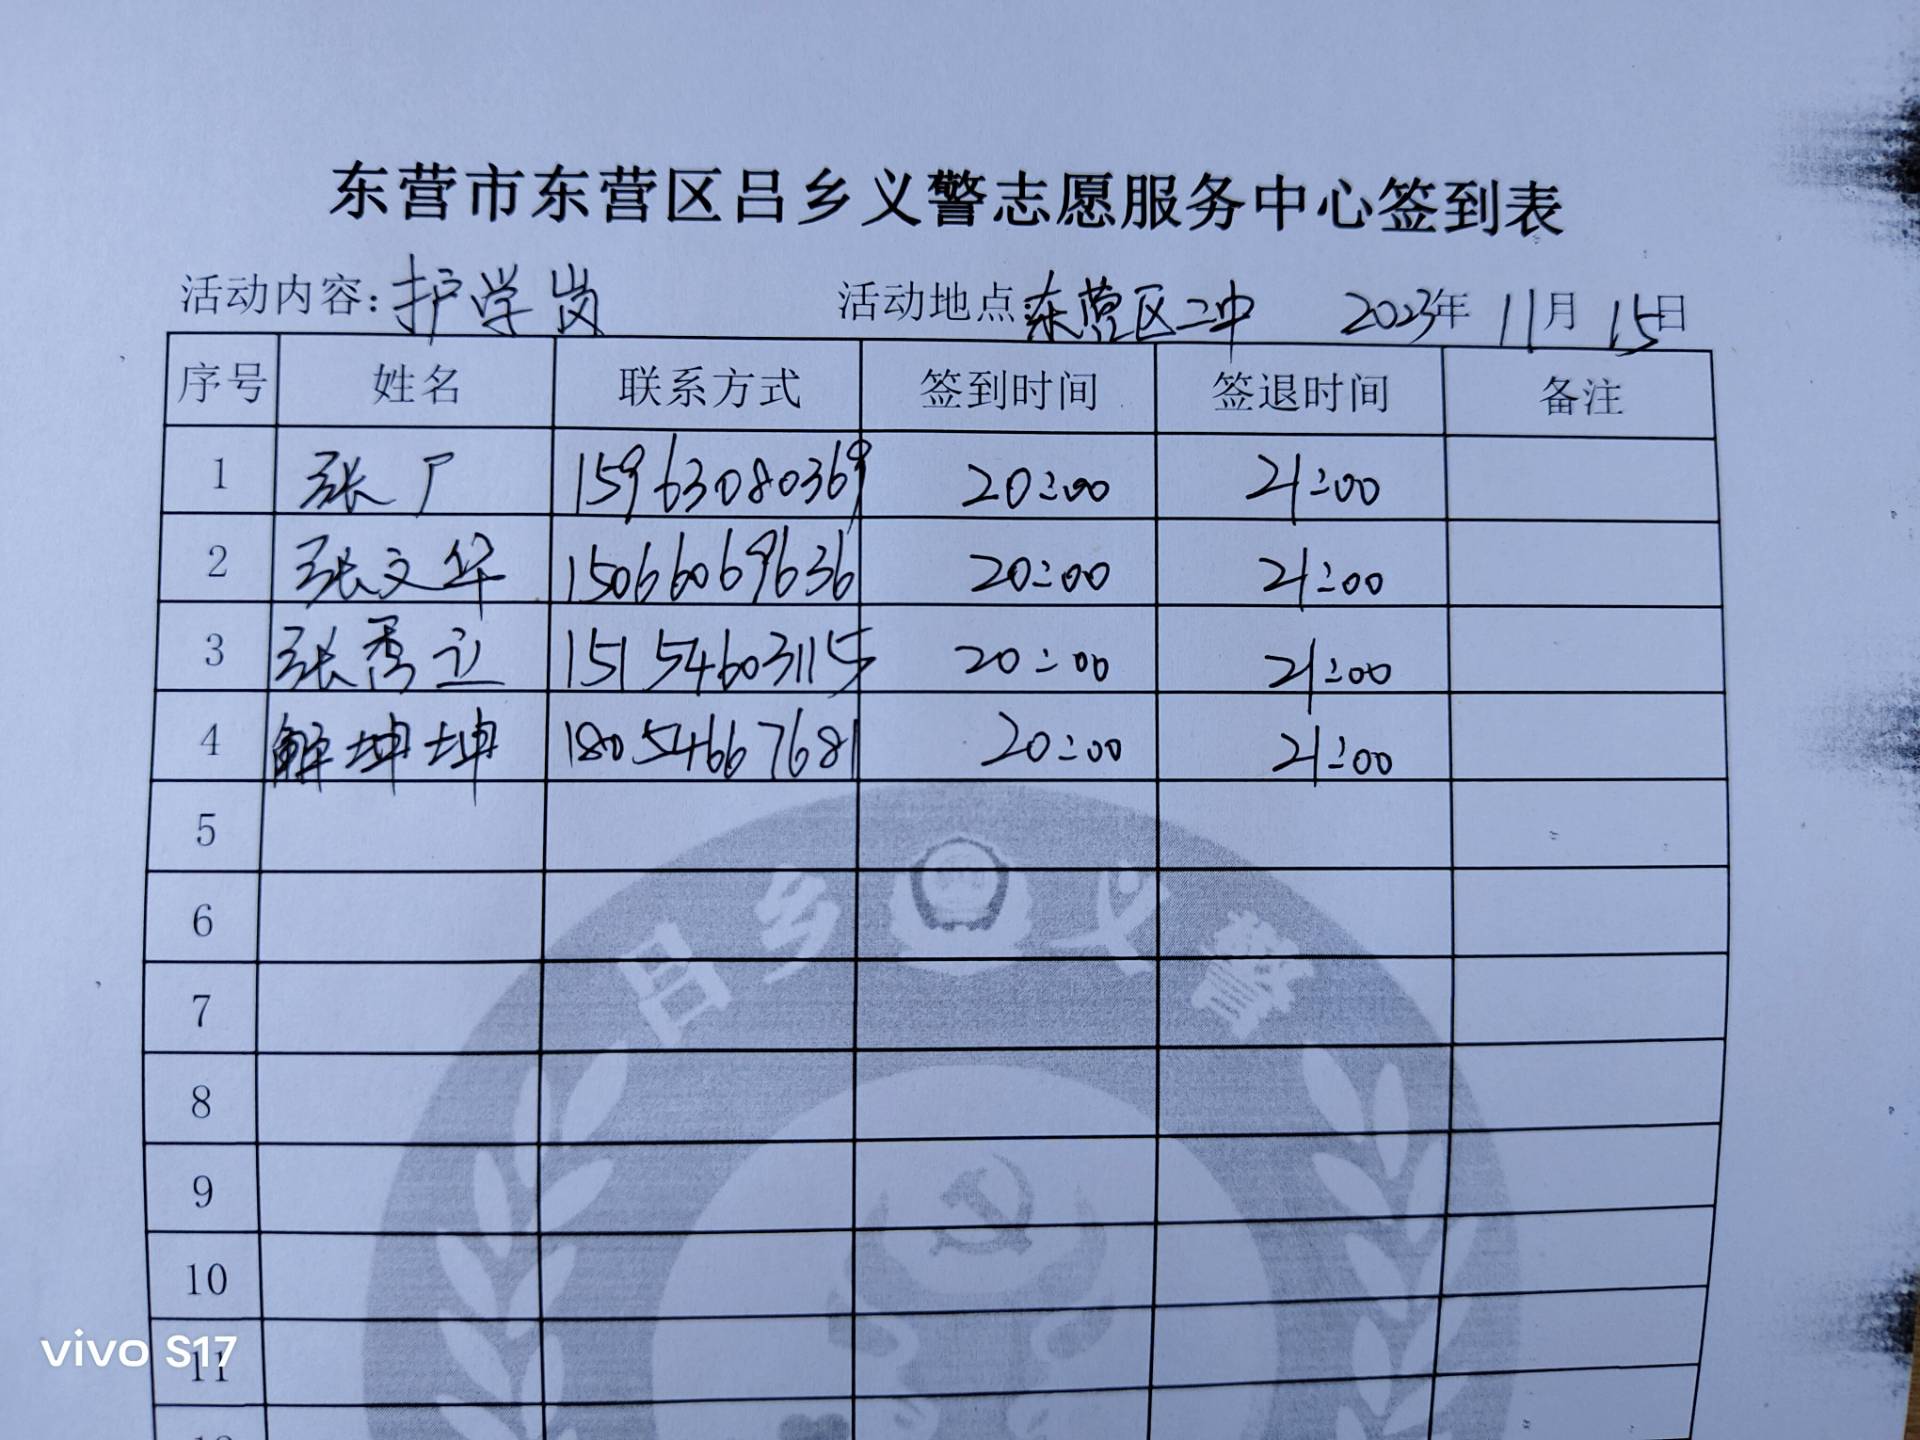 东营市东营区吕乡义警志愿服务中心签到表
活动内容:护学岗 活动地点 东营区二中 2023年 11月 15日
序号 姓名 联系方式 签到时间 签退时间 备注
1 张广 15963080369 20:00 21:00
2 张文华 15066069636 20:00 21:00
3 张秀立 15154603115 20:00 21:00
4 解坤坤 18054667681 20:00 21:00
5
6
7
8
9
10
11
吕乡义警
vivo S17